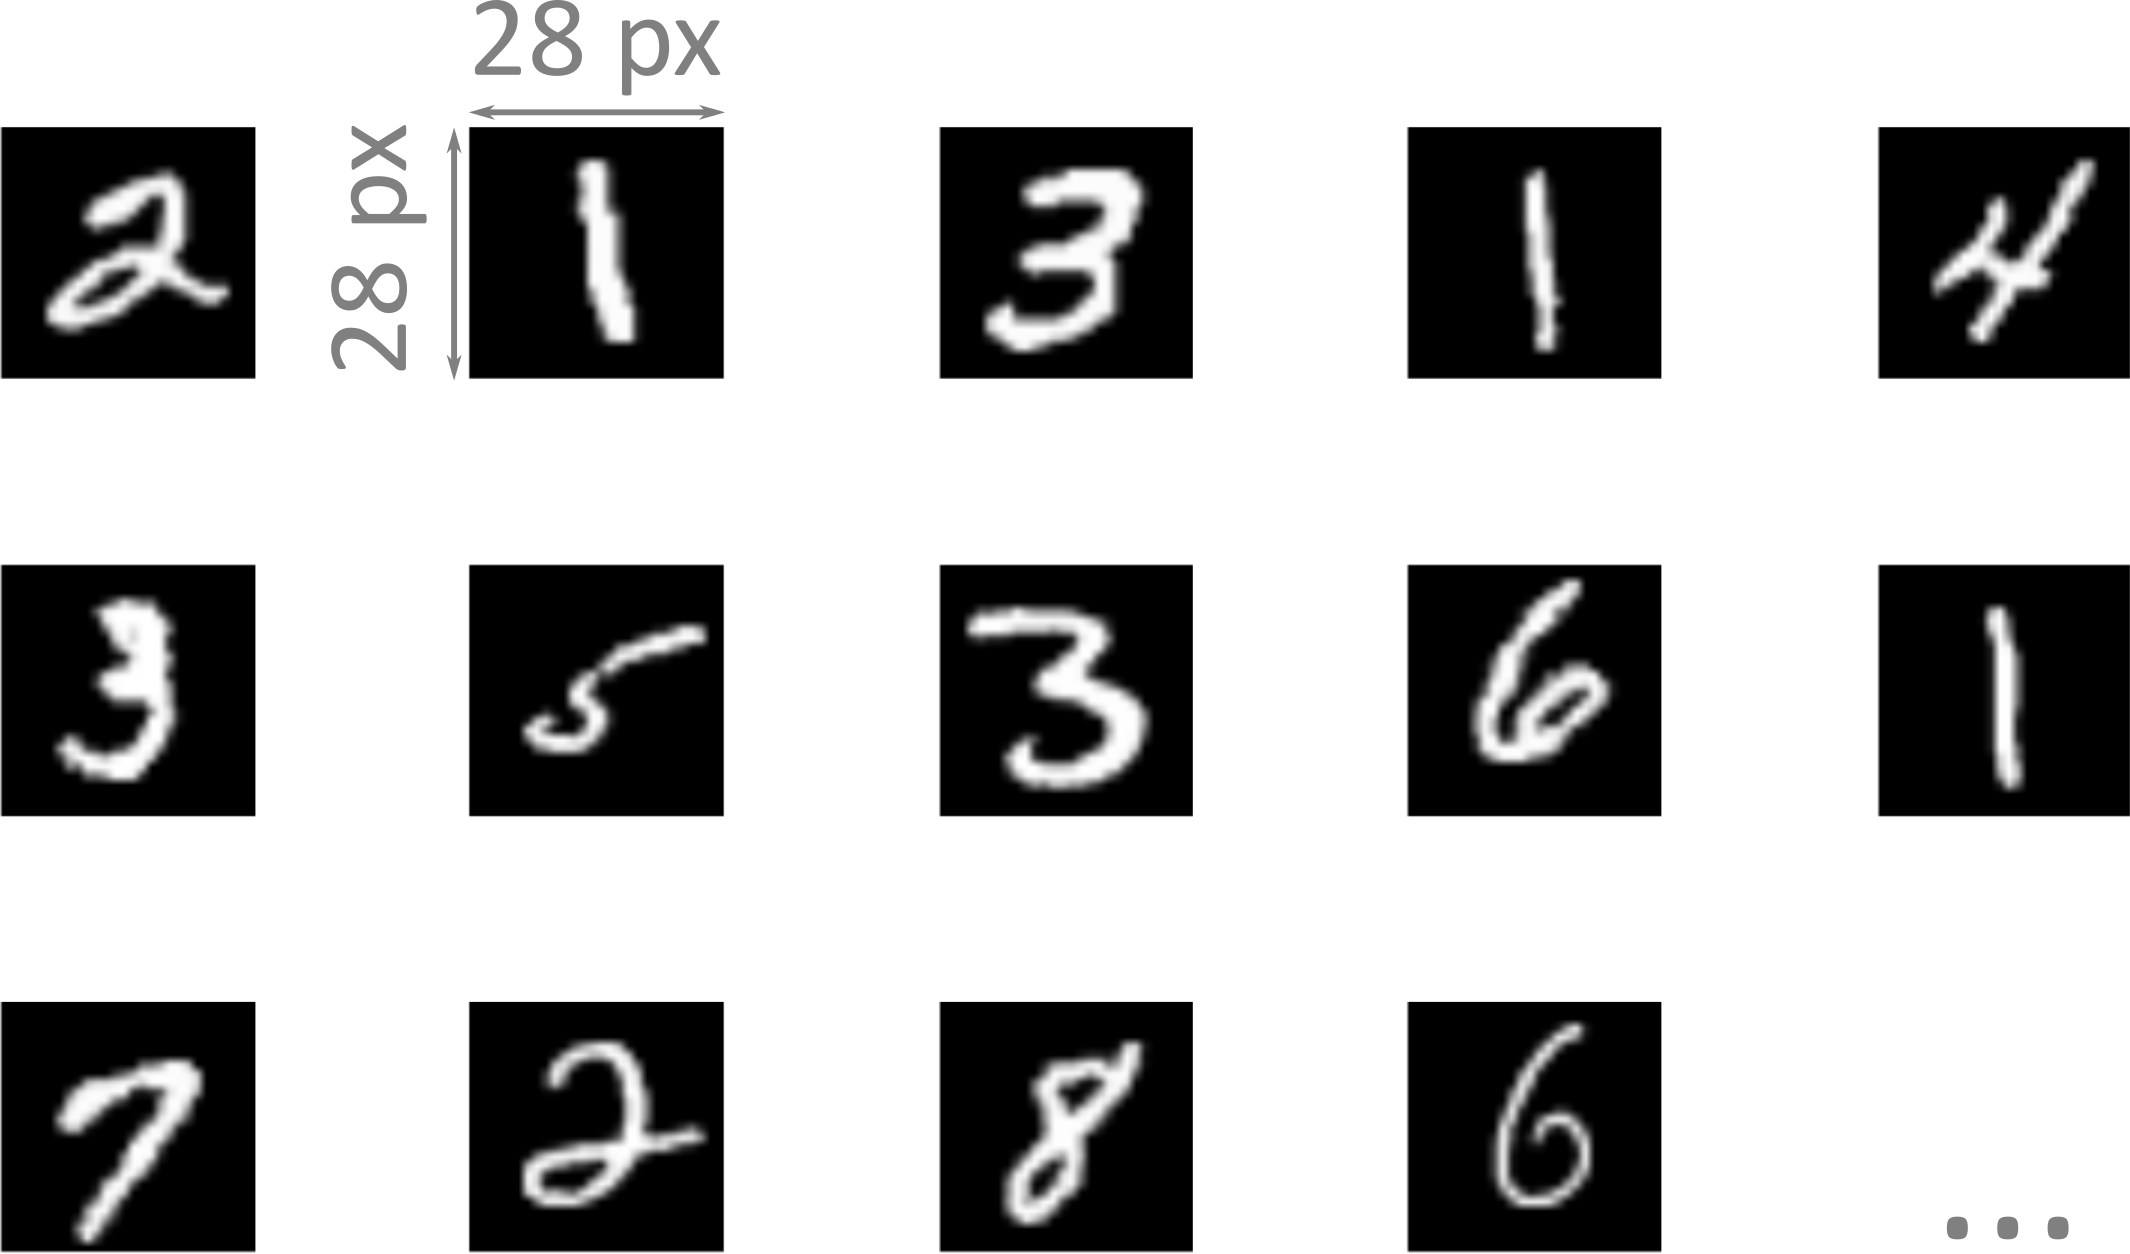 28 px
28 px
2 1 3 1 4
3 5 3 6 1
7 2 8 6 ...